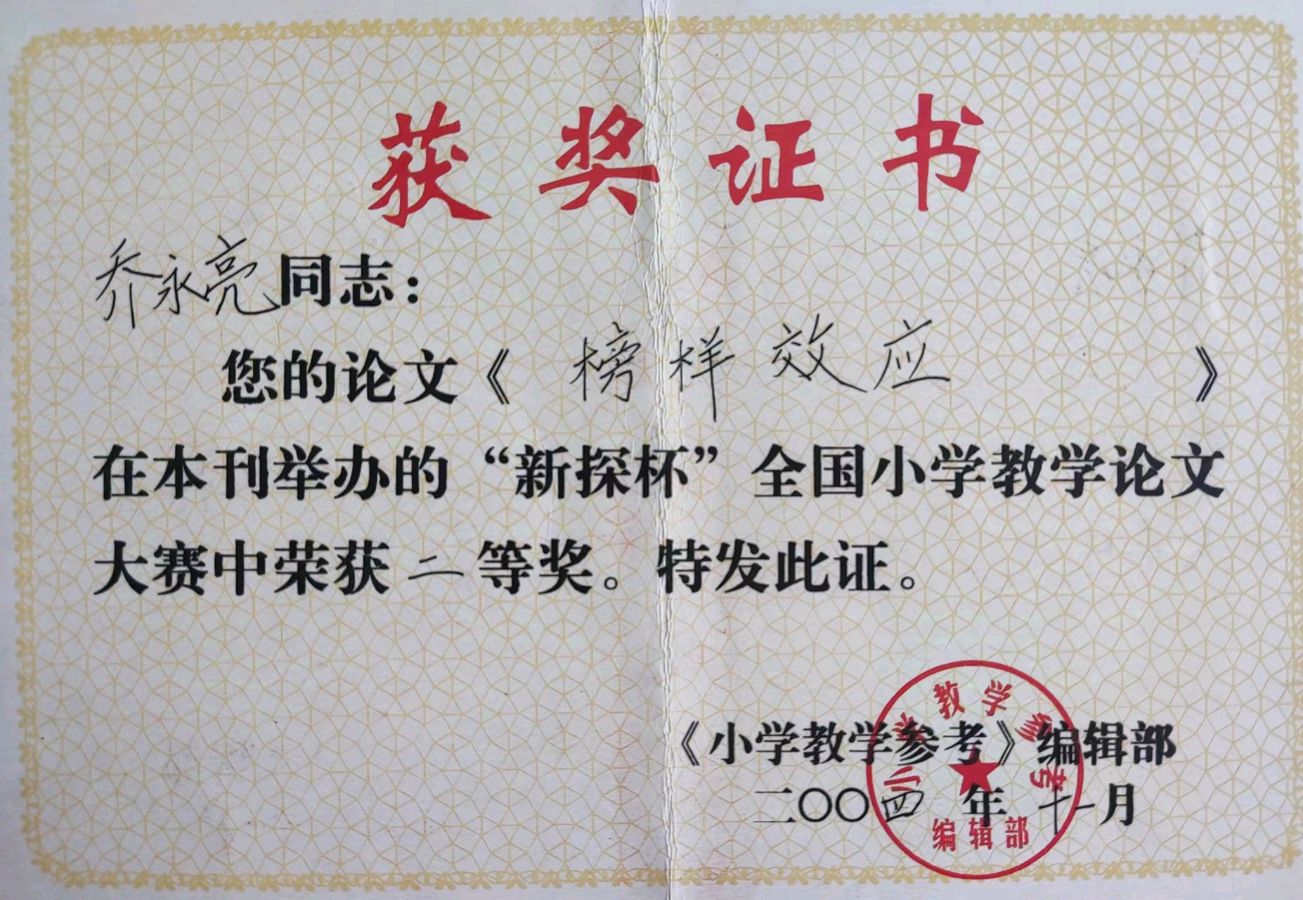 获奖证书
乔永亮同志：
您的论文《榜样效应》
在本刊举办的“新探杯”全国小学教学论文
大赛中荣获二等奖。特发此证。
《小学教学参考》编辑部
二〇〇四年十一月
小学教学参考
编辑部